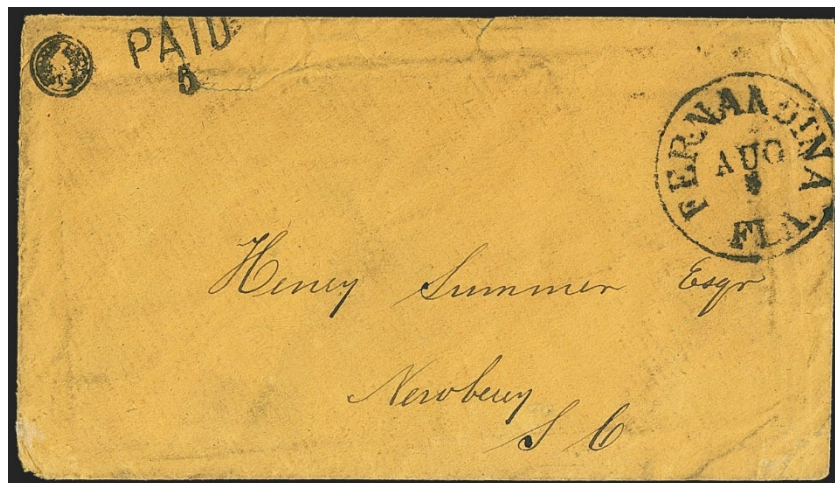 PAID
5
FERNANDINA
AUG
5
FLA.
Henry Summer Esqr
Newberry
S C